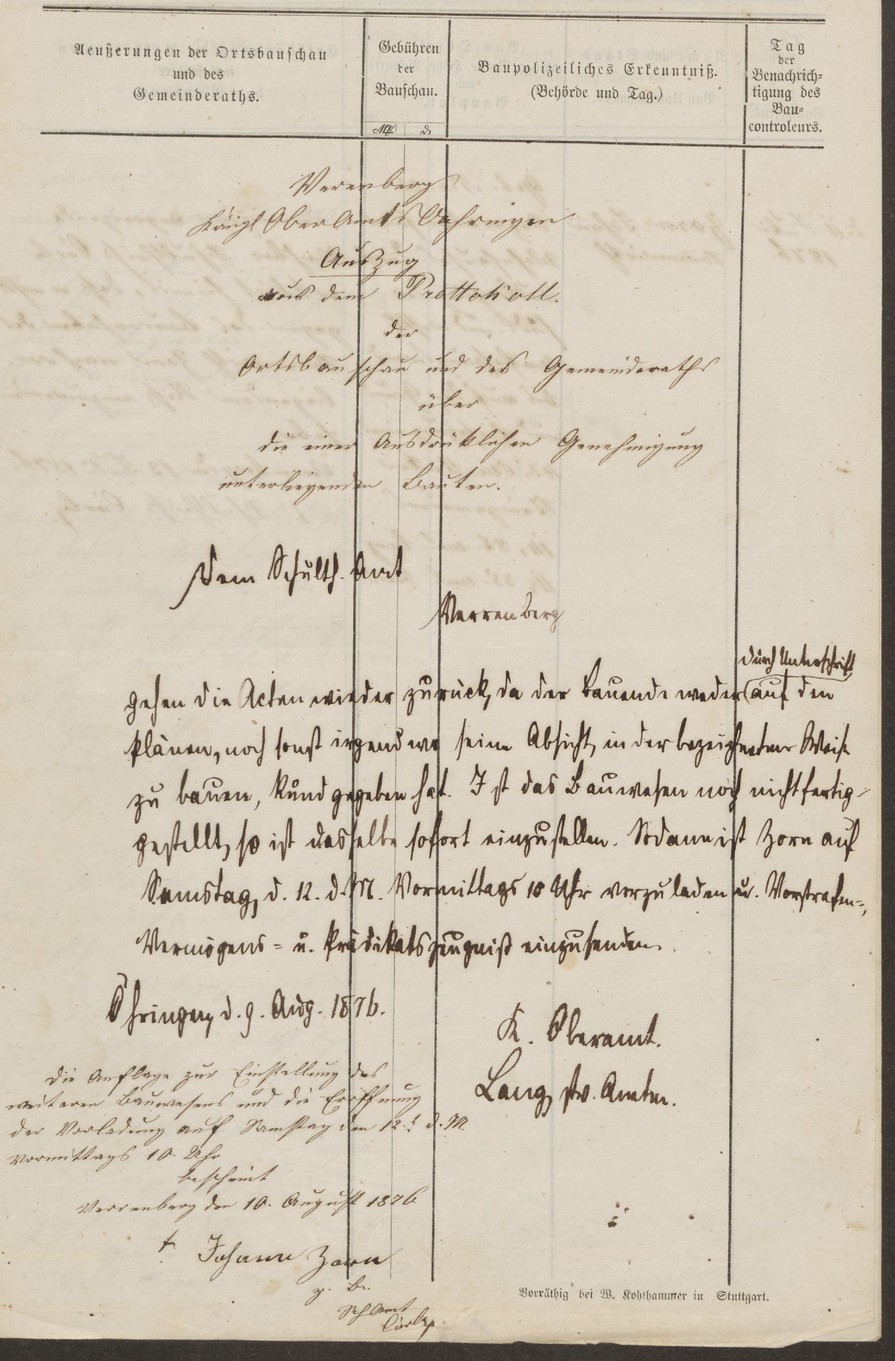 Aeußerungen der Ortsbauschau
und des
Gemeinderaths.
Gebühren
der
Bauschau.
Baupolizeiliches Erkenntniß.
(Behörde und Tag.)
Tag
der
Benachrich-
tigung des
Bau-
controleurs.
Verenberg
Königl Ober Amts Oehringen
Auszug
aus dem Prottokoll.
der
Ortsbauschau und des Gemeinderaths
über
die einer Ausdrüklichen Genehmigung
unterliegenden Bauten.
Dem Schulth. Amt
Verrenberg
durch Unterschrift
gehen die Acten wieder zurück, da der Bauende weder auf den
Plänen, noch sonst irgend wo seine Absicht, in der bezeichneten Weise
zu bauen, kund gegeben hat. Ist das Bauwesen noch nicht fertig-
gestellt, so ist dasselbe sofort einzustellen. Sodann ist Zorn auf
Samstag, d. 12. d. M. Vormittags 10 Uhr vorzuladen u. Vorstrafen-,
Vermögens- u. Prädikatszeugniß einzusenden.
Öhringen, d. 9. Aug. 1876.
K. Oberamt.
Lang, stv. Amtm.
Die Auflage zur Einstellung des
weiteren Bauwesens und die Eröffnung
der Vorladung auf Samstag den 12. d. M.
Vormittags 10 Uhr
bescheint
Verrenberg den 10. August 1876
† Johann Zorn
z. B.
Sch Amt
Vorräthig bei W. Kohlhammer in Stuttgart.